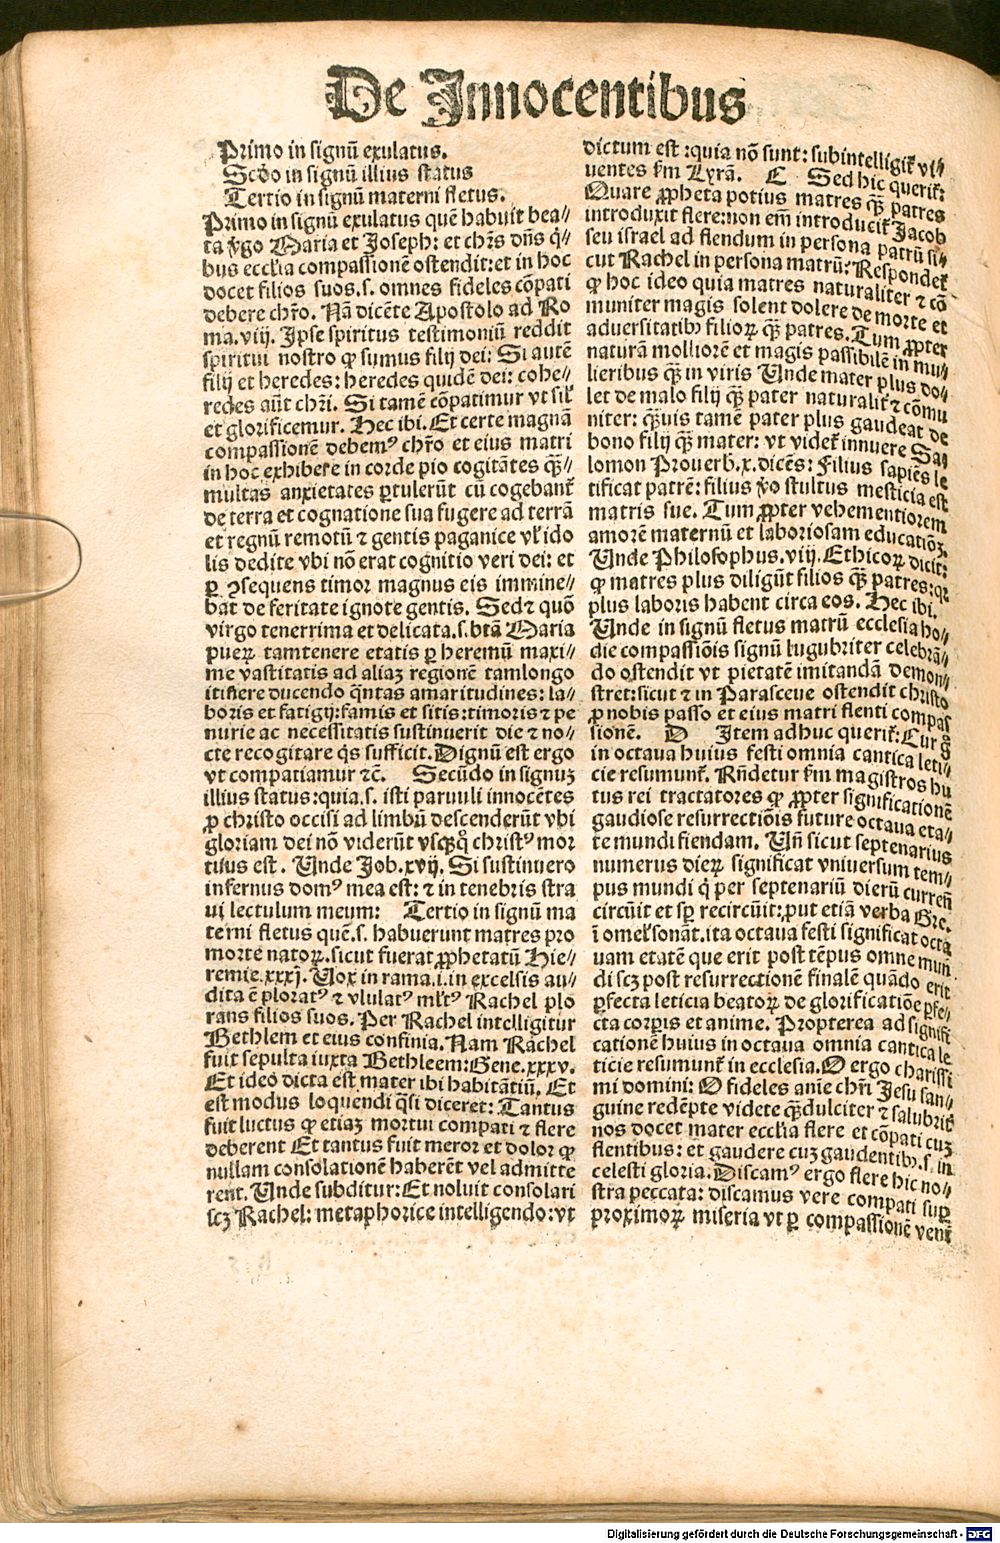 De Innocentibus
Primo in signũ exulatus.
Scd̃o in signũ illius status
Tertio in signũ materni fletus.
Primo in signũ exulatus quẽ habuit bea⸗
ta v̾go Maria et Joseph: et chr̃s dñs q̇⸗
bus eccl̃ia compassionẽ ostendit: et in hoc
docet filios suos .s. omnes fideles cõpati
debere chr̃o. Nã dicẽte Apostolo ad Ro
ma. viij. Ipse spiritus testimoniũ reddit
spiritui nostro ꝙ sumus filij dei: Si autẽ
filij et heredes: heredes quidẽ dei: cohe⸗
redes aũt chr̃i. Si tamẽ cõpatimur vt sil̃
et glorificemur. Hec ibi. Et certe magnã
compassionẽ debemꝰ chr̃o et eius matri
in hoc exhibere in corde pio cogitãtes qua̅⸗
multas anxietates ꝑtulerũt cũ cogebant᷑
de terra et cognatione sua fugere ad terrã
et regnũ remotũ ⁊ gentis paganice vl̃ ido
lis dedite vbi nõ erat cognitio veri dei: et
ꝑ ꝯsequens timor magnus eis immine⸗
bat de feritate ignote gentis. Sed ⁊ quõ
virgo tenerrima et delicata .s. btã Maria
pueꝝ tamtenere etatis ꝑ heremũ maxi⸗
me vastitatis ad aliaꝫ regionẽ tamlongo
itinere ducendo q̃ntas amaritudines: la⸗
boris et fatigij: famis et sitis: timoris ⁊ pe
nurie ac necessitatis sustinuerit die ⁊ no⸗
cte recogitare q̇s sufficit. Dignũ est ergo
vt compatiamur ⁊c̃. Secũdo in signuꝫ
illius status: quia .s. isti paruuli innocẽtes
ꝓ christo occisi ad limbũ descenderũt vbi
gloriam dei nõ viderũt vsq̃quo christꝰ mor
tuus est. Unde Job. xvij. Si sustinuero
infernus domꝰ mea est: ⁊ in tenebris stra
ui lectulum meum: Tertio in signũ ma
terni fletus quẽ .s. habuerunt matres pro
morte natoꝝ. sicut fuerat ꝓphetatũ Hie⸗
remie. xxxj. Uox in rama .i. in excelsis au⸗
dita ẽ ploratꝰ ⁊ vlulatꝰ ml̃tꝰ Rachel plo
rans filios suos. Per Rachel intelligitur
Bethlem et eius confinia. Nam Rachel
fuit sepulta iuxta Bethleem: Gene. xxxv.
Et ideo dicta est mater ibi habitãtiũ. Et
est modus loquendi q̃si diceret: Tantus
fuit luctus ꝙ etiaꝫ mortui compati ⁊ flere
deberent Et tantus fuit meror et dolor ꝙ
nullam consolationẽ haberẽt vel admitte
rent. Unde subditur: Et noluit consolari
scꝫ Rachel: metaphorice intelligendo: vt
dictum est: quia nõ sunt: subintelligit᷑ vi⸗
uentes ẜm Lyrã. C Sed hic querit᷑:
Quare ꝓpheta potius matres q̃ꝫ patres
introduxit flere: non em̃ introducit᷑ Jacob
seu israel ad flendum in persona patrũ si⸗
cut Rachel in persona matrũ: Respondet᷑
ꝙ hoc ideo quia matres naturaliter ⁊ cõ
muniter magis solent dolere de morte et
aduersitatibꝫ filioꝝ q̃ꝫ patres. Tum ꝓpter
naturã molliorẽ et magis passibilẽ in mu⸗
lieribus q̃ꝫ in viris Unde mater plus do⸗
let de malo filij q̃ꝫ pater naturalit᷑ ⁊ cõmu
niter: q̃ꝫuis tamẽ pater plus gaudeat de
bono filij q̃ꝫ mater: vt videt᷑ innuere Sa⸗
lomon Prouerb̃. x. dicẽs: Filius sapiẽs le
tificat patrẽ: filius v̾o stultus mesticia est
matris sue. Tum ꝓpter vehementiorem
amorẽ maternũ et laboriosam educatiõꝫ.
Unde Philosophus. viij. Ethicoꝝ dicit:
ꝙ matres plus diligũt filios q̃ꝫ patres: qꝛ
plus laboris habent circa eos. Hec ibi.
Unde in signũ fletus matrũ ecclesia ho⸗
die compassiõis signũ lugubriter celebrã⸗
do ostendit vt pietatẽ imitandã demon⸗
stret: sicut ⁊ in Parasceue ostendit christo
ꝓ nobis passo et eius matri flenti compas
sionẽ. D Item adhuc querit᷑: Cur g̊
in octaua huius festi omnia cantica leti⸗
cie resumunt᷑. Rñdetur ẜm magistros hu
tus rei tractatores ꝙ ꝓpter significationẽ
gaudiose resurrectiõis future octaua eta⸗
te mundi fiendam. Uñ sicut septenarius
numerus dieꝝ significat vniuersum tem⸗
pus mundi q̇ per septenariũ dierũ curreñ
circũit et sꝑ recircũit: ꝓut etiã verba Gre.
ĩ omel̃ sonãt. ita octaua festi significat octa
uam etatẽ que erit post tẽpus omne mun̄
di scꝫ post resurrectionẽ finalẽ quãdo erit
ꝑfecta leticia beatoꝝ de glorificatiõe ꝑfe⸗
cta corꝑis et anime. Propterea ad signifi
cationẽ huius in octaua omnia cantica le
ticie resumunt᷑ in ecclesia. O ergo charissi
mi domini: O fideles anie̅ chr̃i Jesu san⸗
guine redẽpte videte q̃ꝫdulciter ⁊ salubrit᷑
nos docet mater eccl̃ia flere et cõpati cuꝫ
flentibus: et gaudere cuꝫ gaudentibꝫ .s. in
celesti gloria. Discamꝰ ergo flere hic no⸗
stra peccata: discamus vere compati suꝑ
proximoꝝ miseria vt ꝑ compassionẽ venit᷑
Digitalisierung gefördert durch die Deutsche Forschungsgemeinschaft - DFG